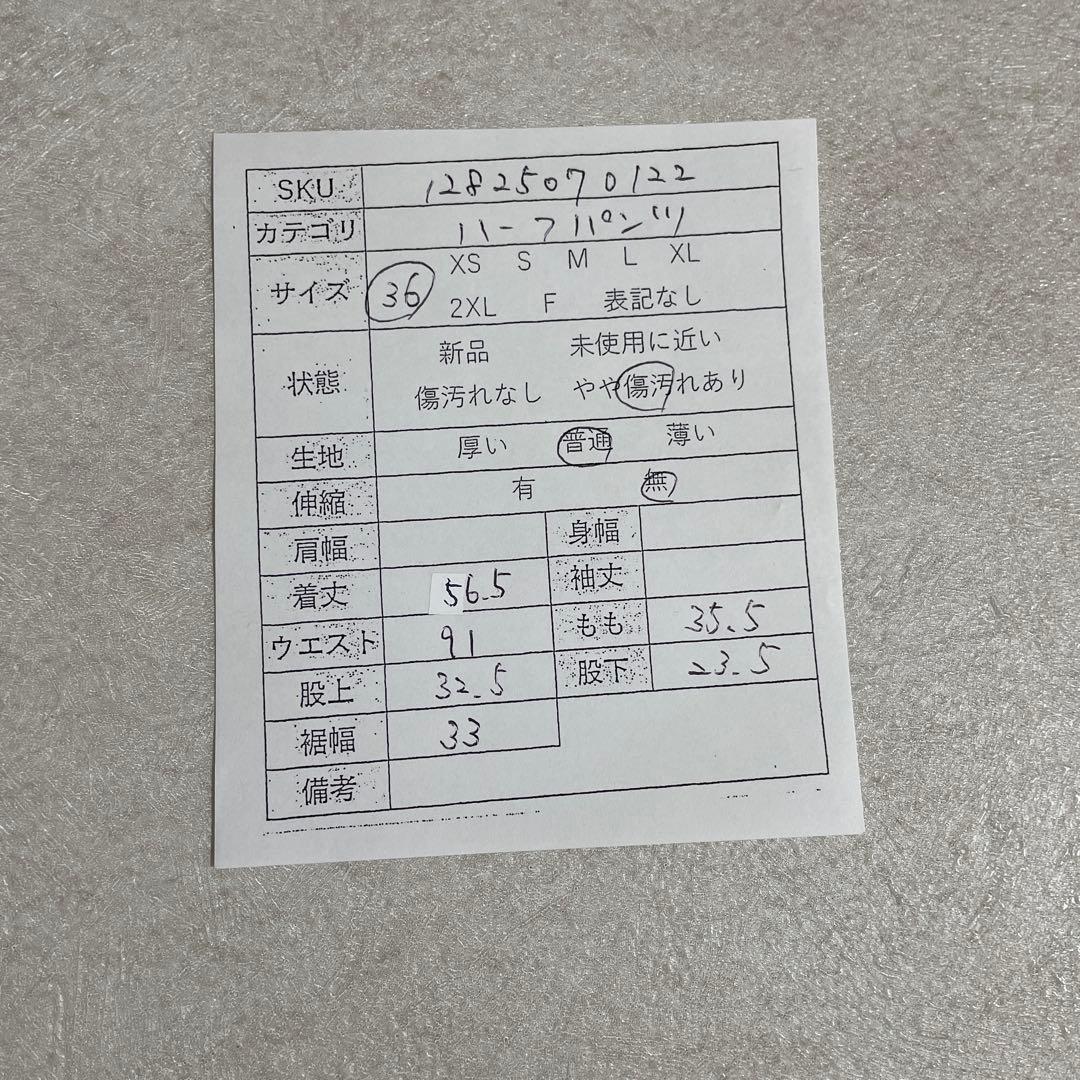 SKU 12825070122
カテゴリ ハーフパンツ
サイズ 36 XS S M L XL
2XL F 表記なし
状態 新品 未使用に近い
傷汚れなし やや傷汚れあり
生地 厚い 普通 薄い
伸縮 有 無
肩幅 身幅
着丈 56.5 袖丈
ウエスト 91 もも 35.5
股上 32.5 股下 23.5
裾幅 33
備考